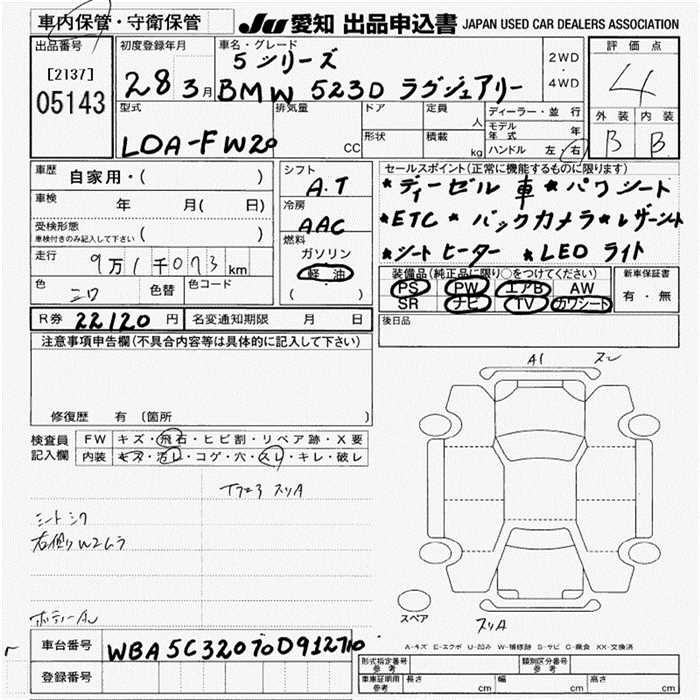 車内保管・守衛保管
JU 愛知 出品申込書 JAPAN USED CAR DEALERS ASSOCIATION
出品番号
[2137]
05143
初度登録年月
28 3月
車名・グレード
5シリーズ
BMW 523D ラグジュアリー
2WD
・
4WD
評価点
4
外装 内装
B B
型式
LDA-FW20
排気量
CC
ドア
形状
定員
人
積載
kg
ディーラー・並行
モデル年式 年
ハンドル 左・右
車歴
自家用・( )
車検
年 月( 日)
受検形態
車検付きのみ記入して下さい ( )
走行
9万1千073km
色
シロ
色替
色コード
シフト
A.T
冷房
AAC
燃料
ガソリン
軽油
( )
セールスポイント(正常に機能するものに限ります)
*ディーゼル車*パワシート
*ETC*バックカメラ*レザーシート
*シートヒーター *LEDライト
装備品(純正品に限り○をつけてください)
PS PW エアB AW
SR ナビ TV カワシート
新車保証書
有・無
R券 22120円
名変通知期限 月 日
後日品
注意事項申告欄(不具合内容等は具体的に記入して下さい)
修復歴 有(箇所 )
検査員
記入欄
FW キズ・飛石・ヒビ割・リペア跡・X要
内装 キズ・汚レ・コゲ・穴・スレ・キレ・破レ
スリA
A1
スペア
スリA
A-キズ E-エクボ U-凹み W-補修跡 S-サビ C-腐食 XX-交換済
車台番号
WBA5C32070D912710
登録番号
形式指定番号
参考
類別区分番号
参考
車庫証明用
参考
長さ cm
幅 cm
高さ cm